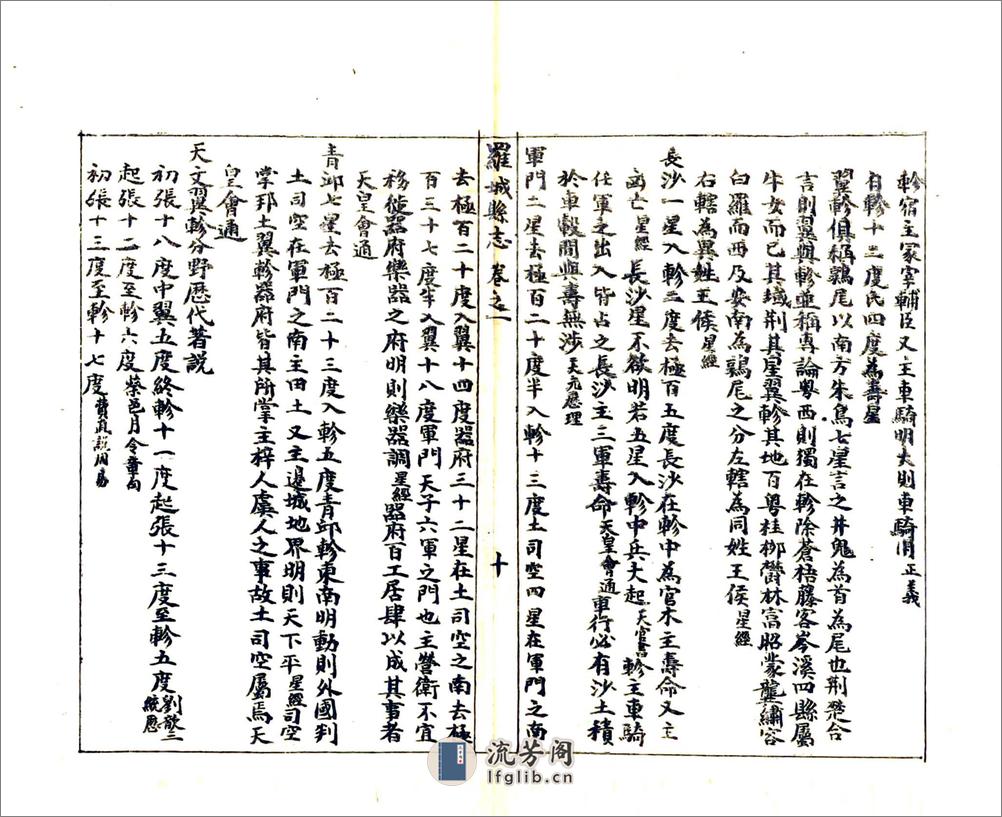 軫宿主冢宰輔臣又主車騎明大則車騎用正義
自軫十二度氐四度為壽星
翼軫俱稱鶉尾以南方朱鳥七星言之井鬼為首為尾也荆楚合
言則翼與軫並稱專論粤西則獨在軫除蒼梧藤容岑溪四縣屬
牛女而已其域荆其星翼軫其地百粤桂柳欝林富昭蒙龔繡容
白羅而西及安南為鶉尾之分左轄為同姓王侯星經
右轄為異姓王侯星經
長沙一星入軫二度去極百五度長沙在軫中為官木主壽命又主
凶亡星經 長沙星不欲明若五星入軫中兵大起天官書軫主車騎
任軍之出入皆占之長沙主三軍壽命天皇會通車行必有沙土積
於車轂間與壽無涉天元應理
軍門二星去極百二十度半入軫十三度土司空四星在軍門之南
羅城縣志 卷之一 十
去極百二十度入翼十四度器府三十二星在土司空之南去極
百三十七度半入翼十八度軍門天子六軍之門也主營衛不宜
移徙器府樂器之府明則樂器調星經器府百工居肆以成其事者
天皇會通
青邱七星去極百二十三度入軫五度青邱軫東南明動則外國判
土司空在軍門之南主田土又主邊城地界明則天下平星經司空
掌邦土翼軫器府皆其所掌主梓人虞人之事故土司空屬焉天
皇會通
天文翼軫分野歷代著説
初張十八度中翼五度終軫十一度起張十三度至軫五度劉歆三統歷
起張十二度至軫六度蔡邕月令章句
初張十三度至軫十七度費直説周易
流芳阁
lfglib.cn